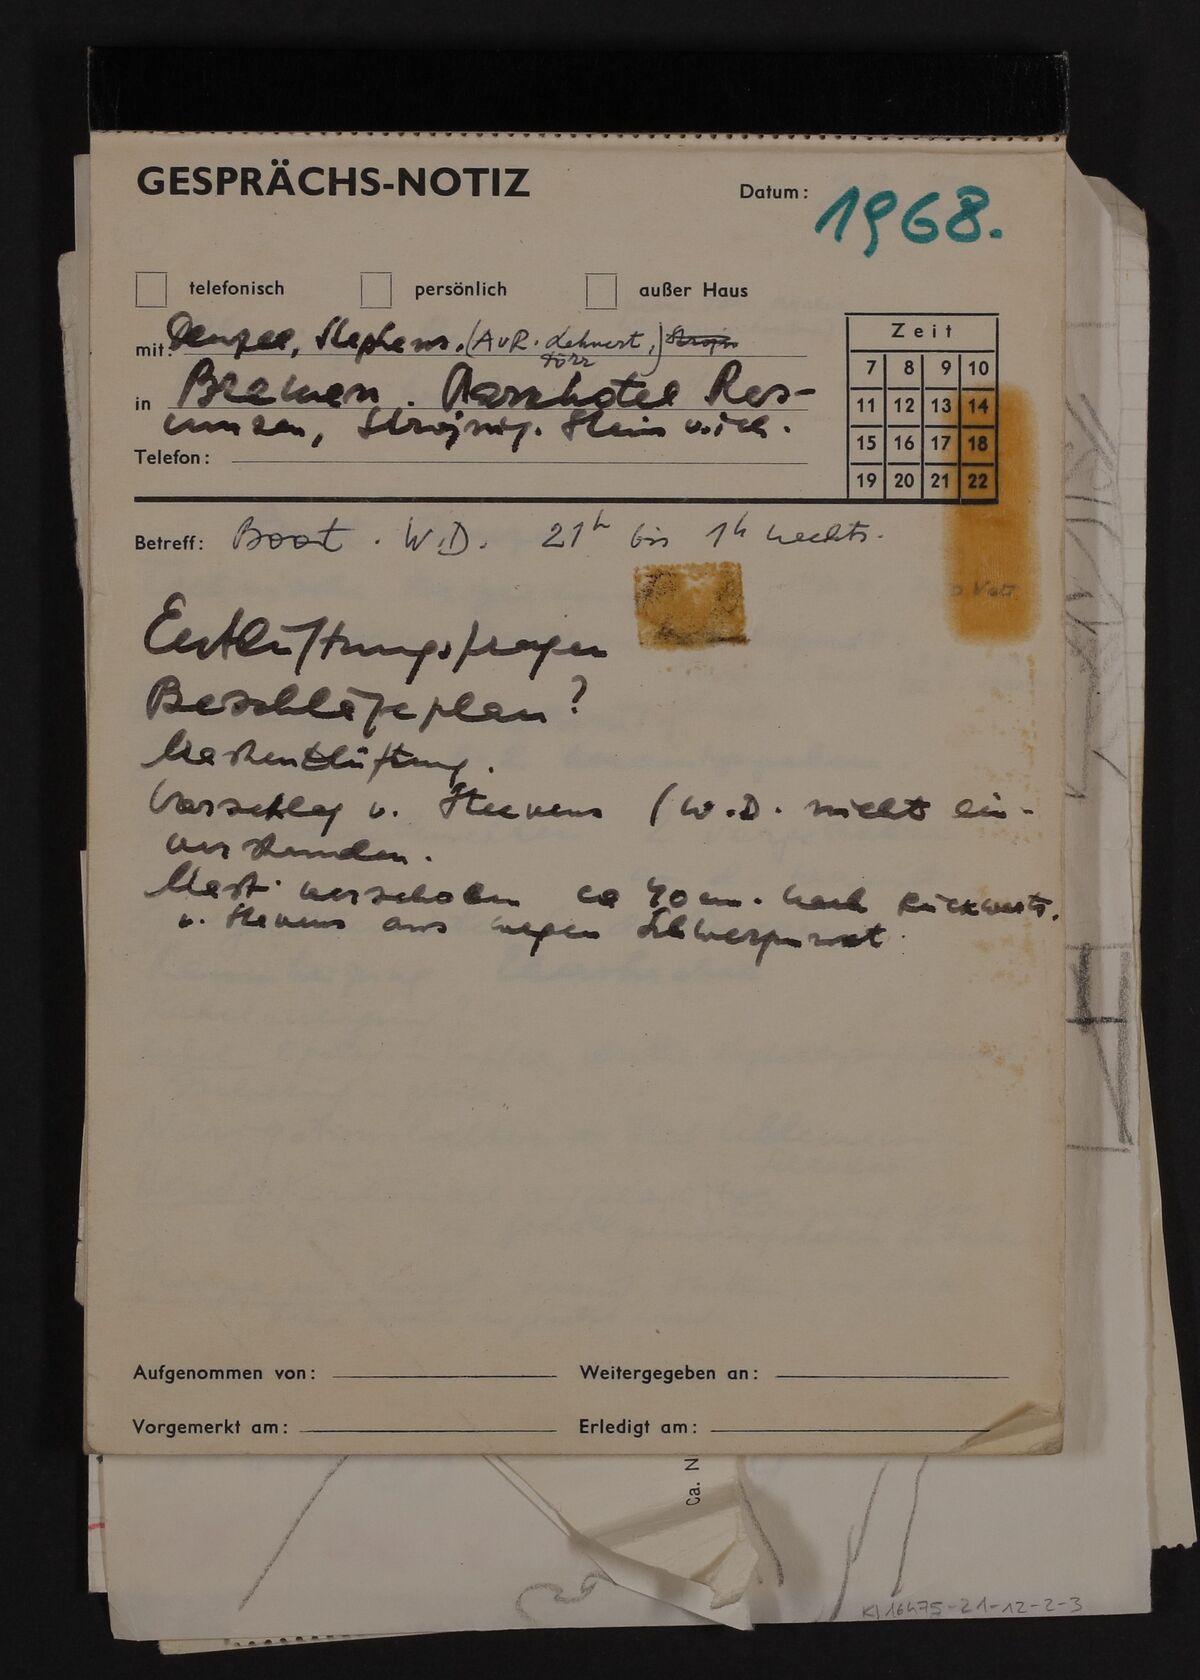 GESPRÄCHS-NOTIZ
Datum: 1968.
telefonisch persönlich außer Haus
mit: Stephens, (AvR. Lehnert,)
Törr
in Bremen. Parkhotel
Stein u. ich.
Telefon:
Zeit
7 8 9 10
11 12 13 14
15 16 17 18
19 20 21 22
Betreff: Boot. W.D. 21h bis 1h nachts.
Entlüftungsfragen
Beschlägeplan?
Mastentlüftung.
Vorschlag v. Stevens (W.D. nicht ein-
verstanden.
Mast verschoben ca 40 cm. nach rückwärts.
v. Stevens aus wegen Schwerpunkt.
Aufgenommen von: Weitergegeben an:
Vorgemerkt am: Erledigt am:
Ca. N
KI 16475-21-12-2-3